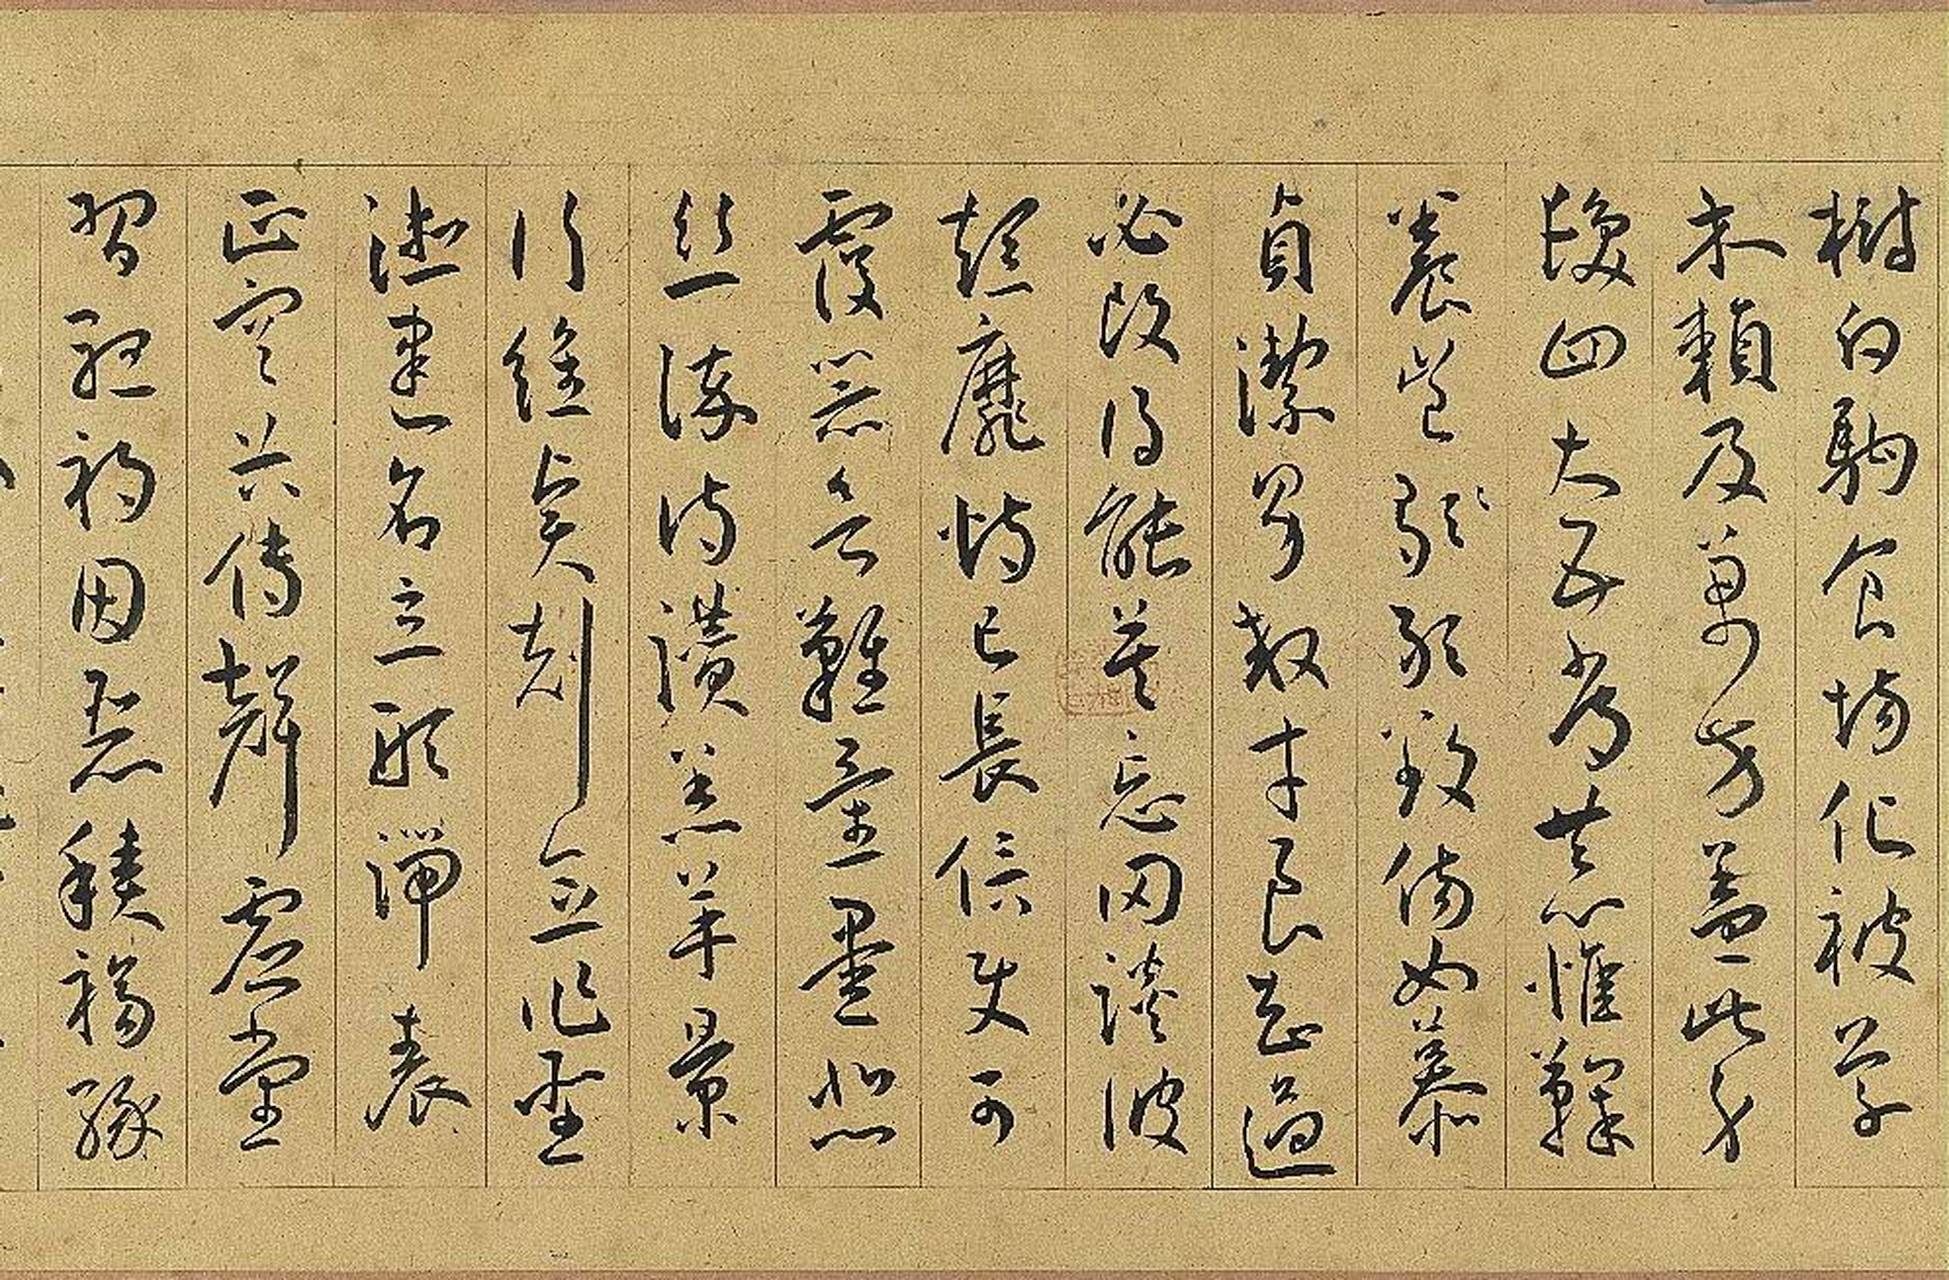 樹白駒食場化被草
木賴及萬方蓋此身
髮四大五常恭惟鞠
養豈敢毀傷女慕
貞潔男效才良知過
必改得能莫忘罔談彼
短靡恃己長信使可
覆器欲難量墨悲
絲染詩讚羔羊景
行維賢剋念作聖
德建名立形端表
正空谷傳聲虛堂
習聽禍因惡積福緣